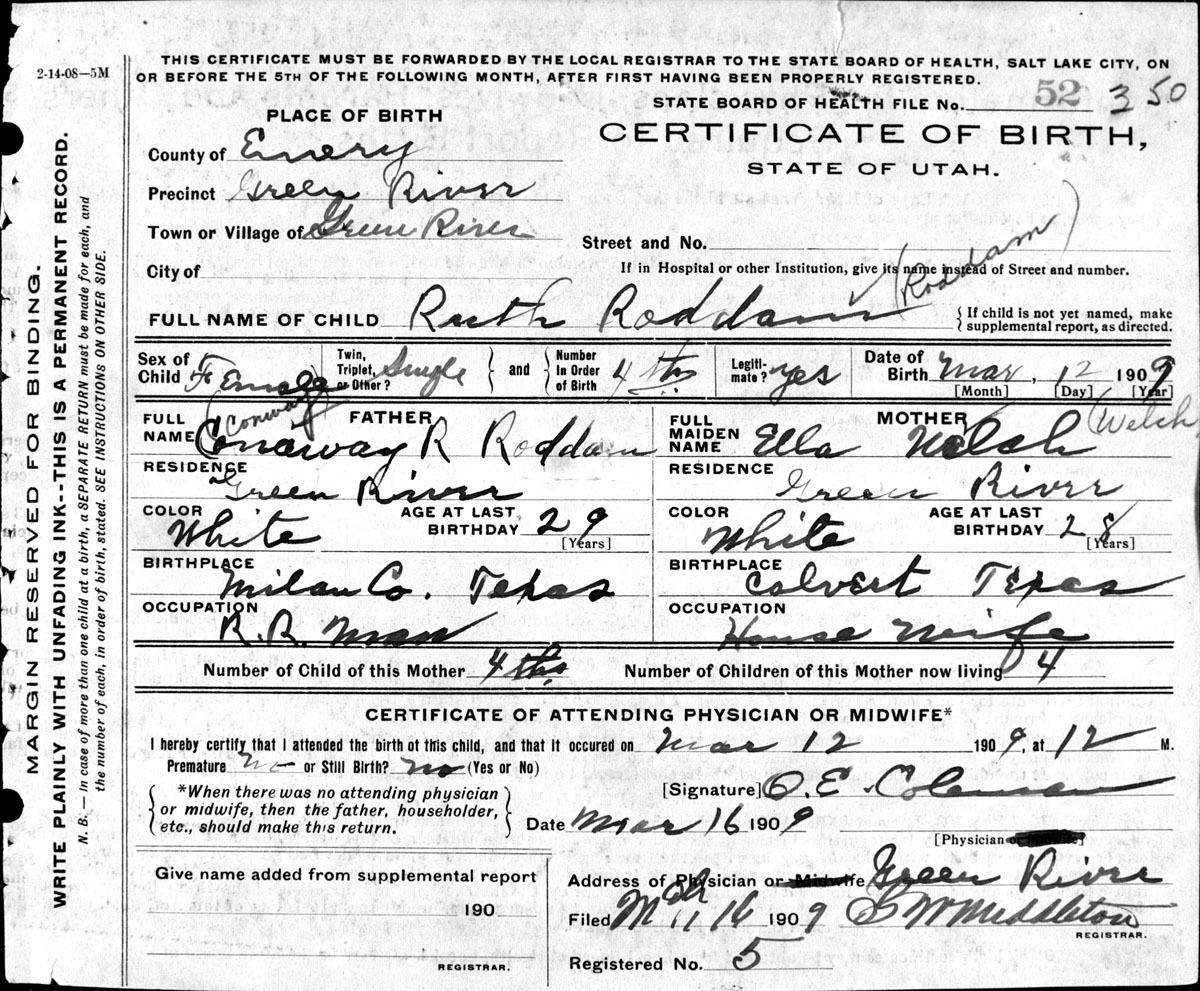 2-14-08—5M
THIS CERTIFICATE MUST BE FORWARDED BY THE LOCAL REGISTRAR TO THE STATE BOARD OF HEALTH, SALT LAKE CITY, ON
OR BEFORE THE 5TH OF THE FOLLOWING MONTH, AFTER FIRST HAVING BEEN PROPERLY REGISTERED.
MARGIN RESERVED FOR BINDING.
WRITE PLAINLY WITH UNFADING INK--THIS IS A PERMANENT RECORD.
N. B.— In case of more than one child at a birth, a SEPARATE RETURN must be made for each, and
the number of each, in order of birth, stated. SEE INSTRUCTIONS ON OTHER SIDE.
STATE BOARD OF HEALTH FILE No. 52 350
PLACE OF BIRTH
CERTIFICATE OF BIRTH,
STATE OF UTAH.
County of Emery
Precinct Green River
Town or Village of Green River
Street and No.
City of
If in Hospital or other Institution, give its name instead of Street and number.
(Roddam)
FULL NAME OF CHILD Ruth Roddam
{ If child is not yet named, make
supplemental report, as directed.
Sex of Child Female
Twin, Triplet, or Other? Single } and { Number In Order of Birth 4th
Legiti-mate? yes
Date of Birth Mar, 12 1909
[Month] [Day] [Year]
FATHER
FULL NAME Conaway R Roddam
(Conway)
RESIDENCE
Green River
COLOR White
AGE AT LAST BIRTHDAY 29
[Years]
BIRTHPLACE
Milan Co. Texas
OCCUPATION
R.R. Man
MOTHER
FULL MAIDEN NAME Ella Welch
(Welch)
RESIDENCE
Green River
COLOR White
AGE AT LAST BIRTHDAY 28
[Years]
BIRTHPLACE
Calvert Texas
OCCUPATION
House Wife
Number of Child of this Mother 4ths
Number of Children of this Mother now living 4
CERTIFICATE OF ATTENDING PHYSICIAN OR MIDWIFE*
I hereby certify that I attended the birth of this child, and that it occured on Mar 12 1909, at 12 M.
Premature No or Still Birth? No (Yes or No)
{ *When there was no attending physician
or midwife, then the father, householder,
etc., should make this return. }
[Signature] O. E. Coleman
Date Mar 16 1909
[Physician or midwife]
Give name added from supplemental report
190
REGISTRAR.
Address of Physician or Midwife Green River
Filed Mar 16 1909 S W Middleton
REGISTRAR.
Registered No. 5